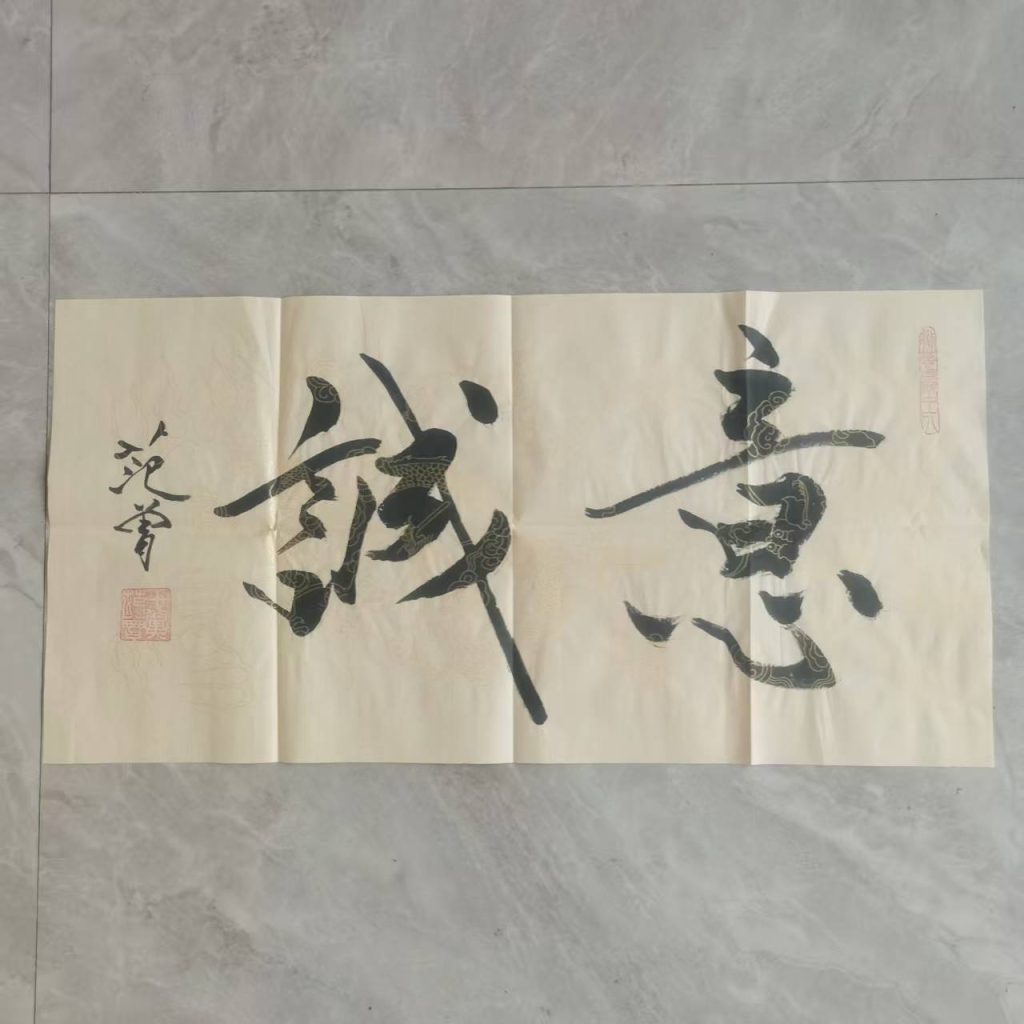 意誠
范曾